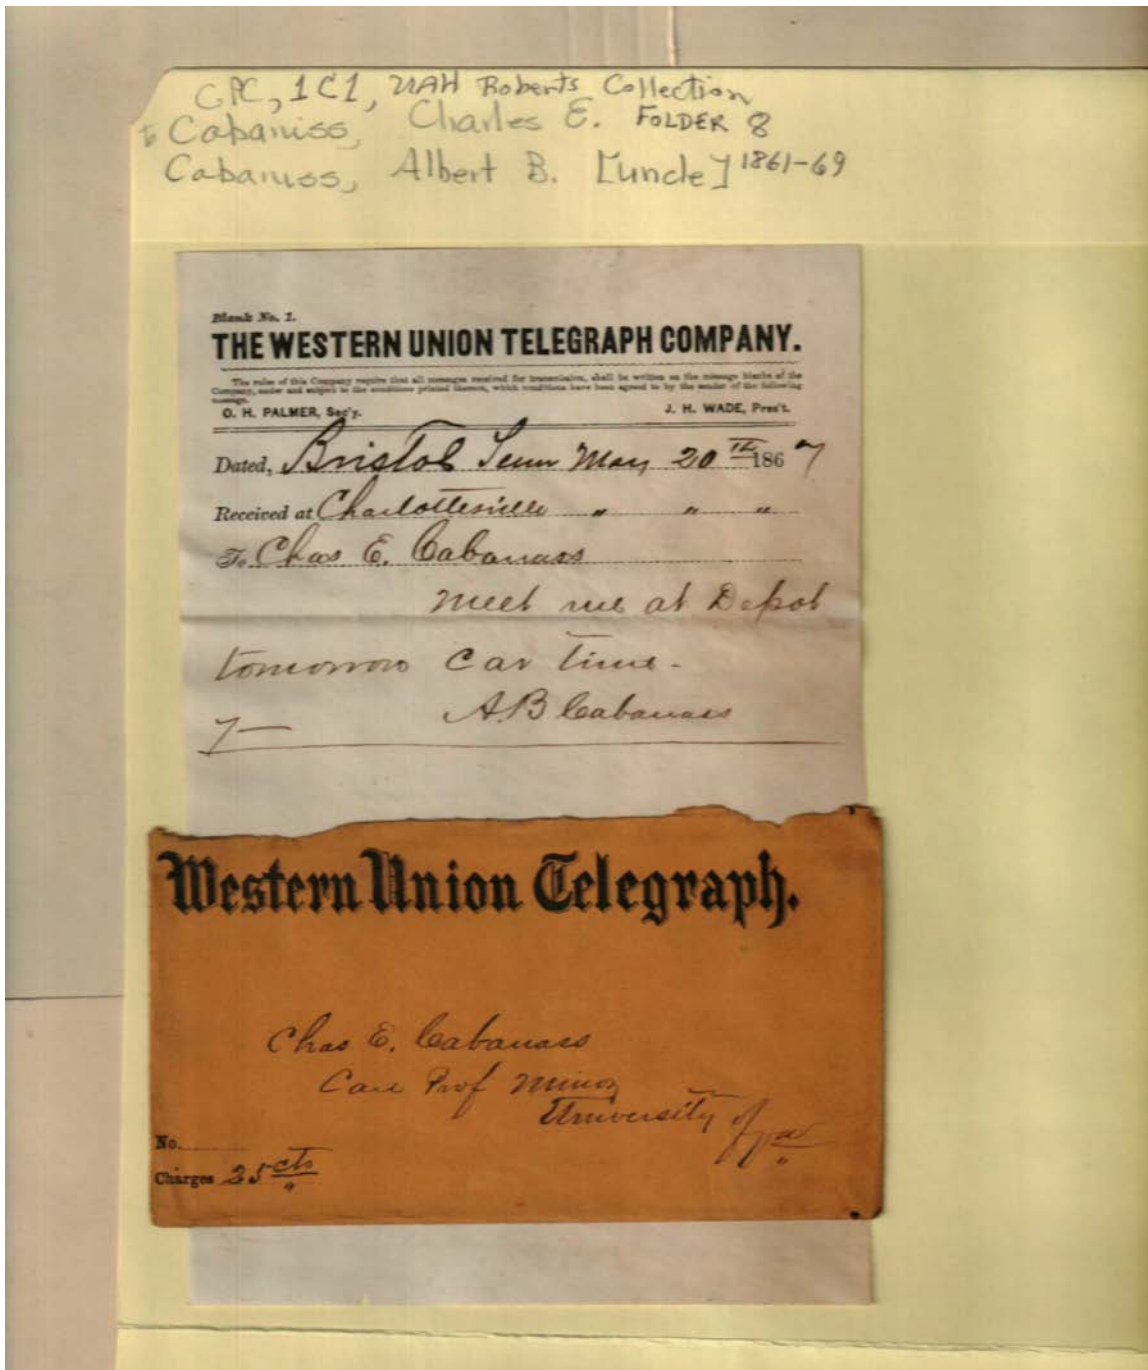 CPC, 1C1, UAH Roberts Collection
to Cabaniss, Charles E. FOLDER 8
Cabaniss, Albert B. [uncle] 1861-69
Blank No. 1.
THE WESTERN UNION TELEGRAPH COMPANY.
The rules of this Company require that all messages received for transmission, shall be written on the message blanks of the
Company, under and subject to the conditions printed thereon, which conditions have been agreed to by the sender of the following
message.
O. H. PALMER, Sec'y. J. H. WADE, Pres't.
Dated, Bristol Tenn May 20th 1867
Received at Charlottesville " " "
To Chas E. Cabanass
Meet me at Depot
tomorrow Car time.
A.B Cabanass
7—
Western Union Telegraph.
Chas E. Cabanass
Care Prof Minor
University of Va
No.
Charges 25 cts